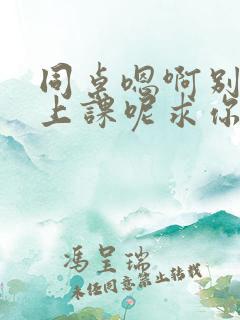 同桌嗯啊别
上课呢求你
冯呈瑞
未经同意禁止转载